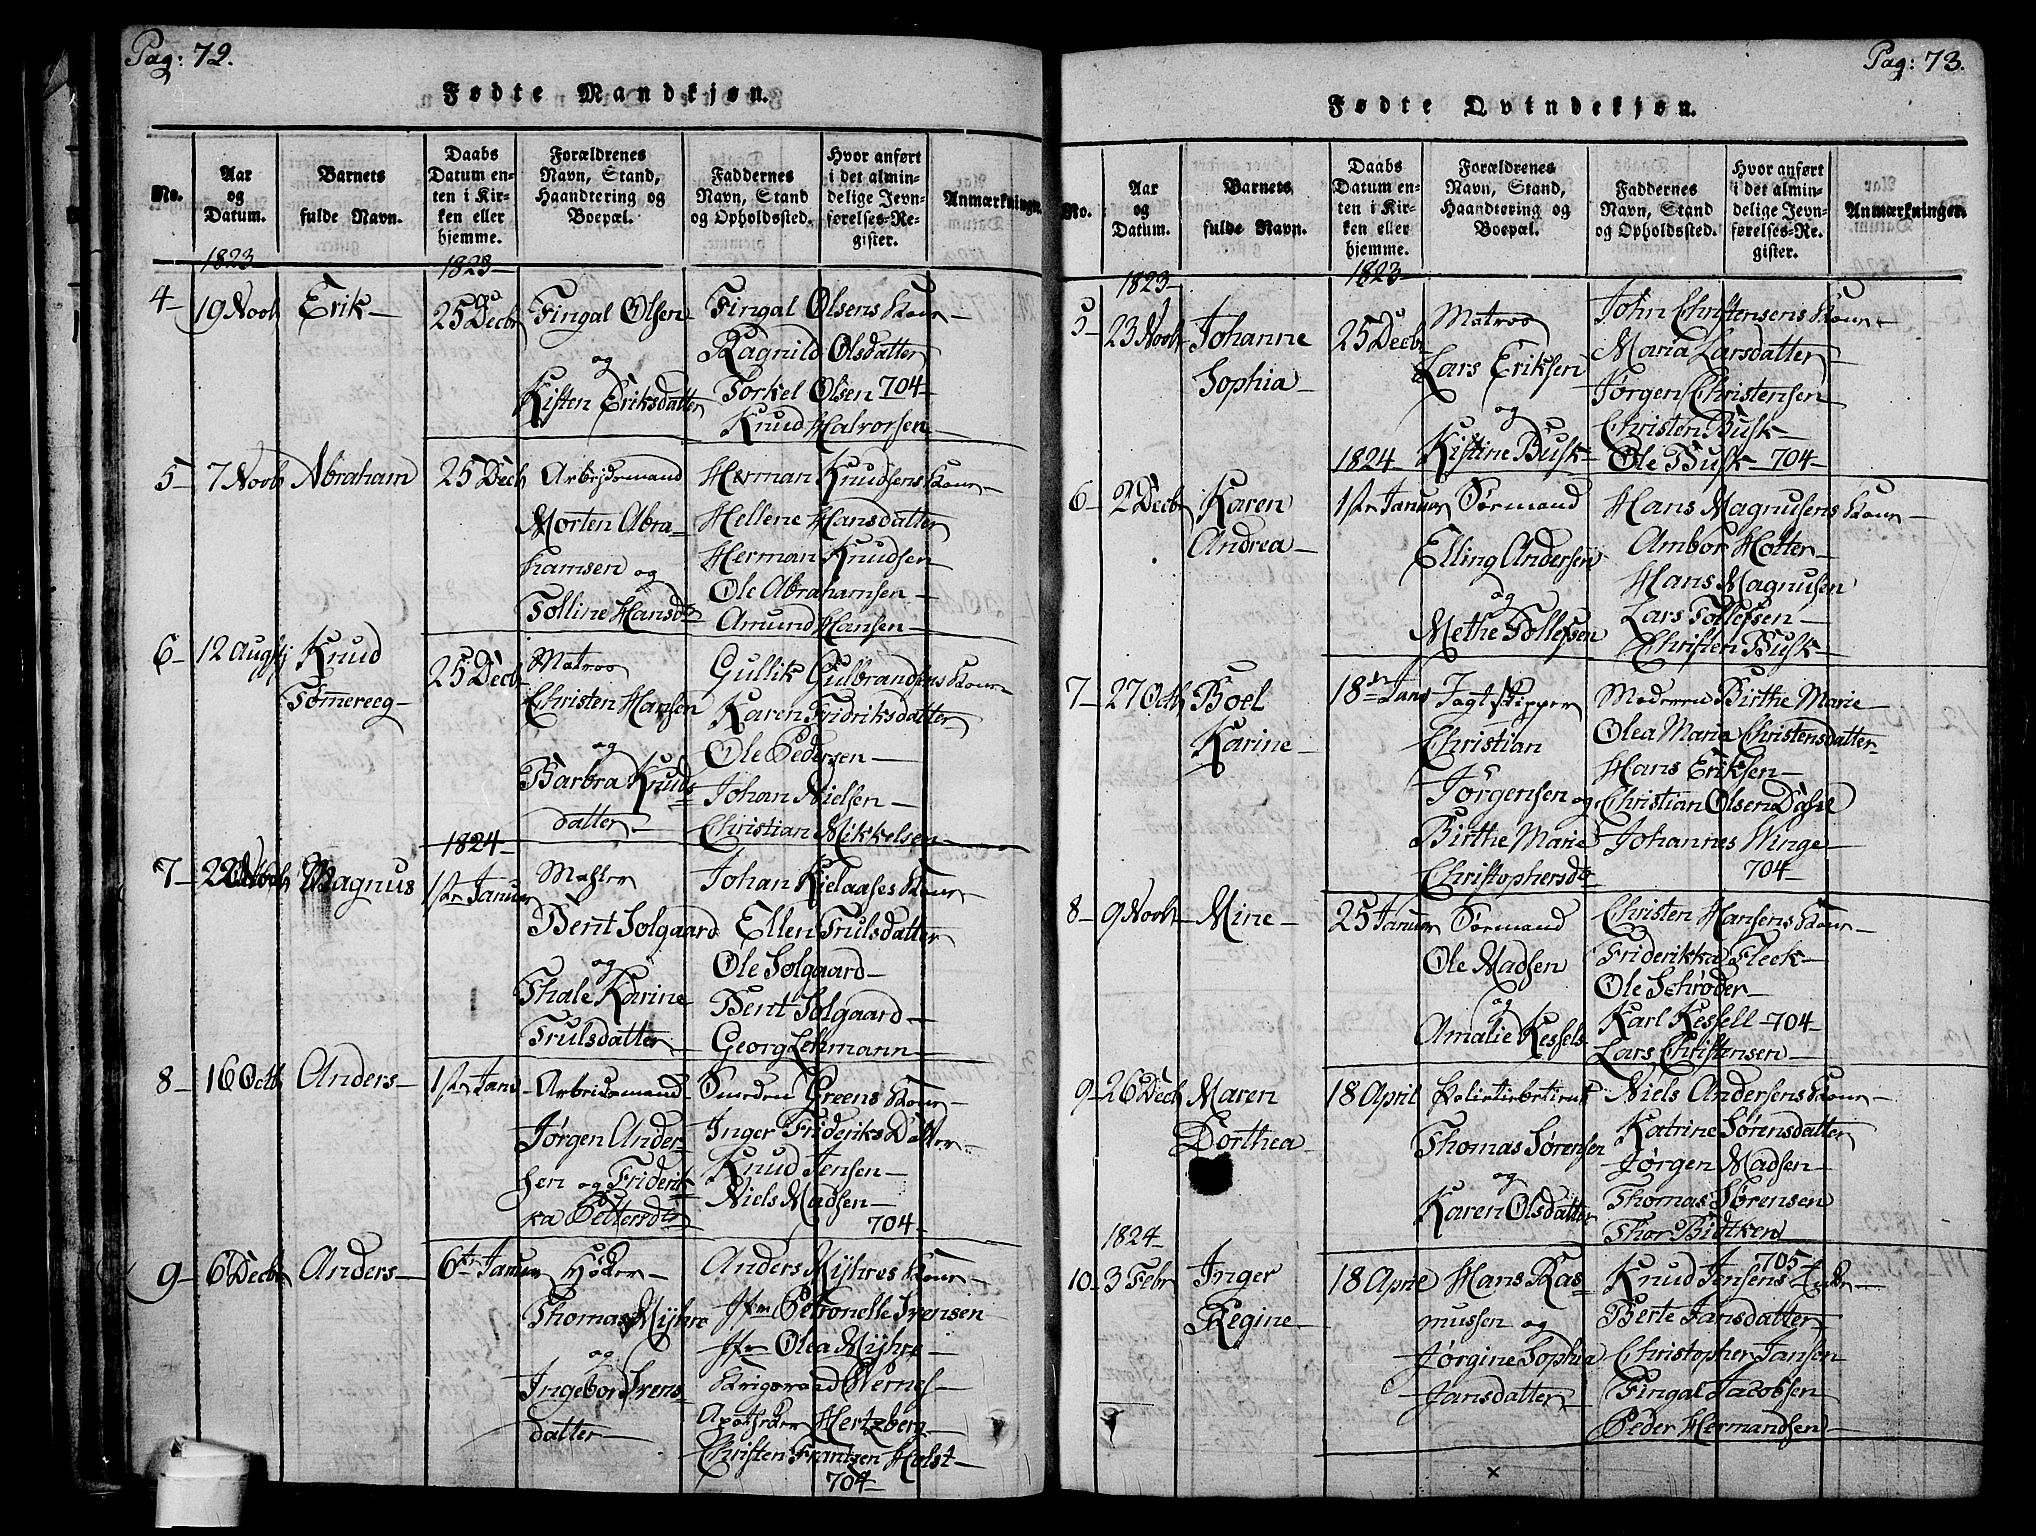 Pag: 72.
Fødte Mandkjøn.
No.
Aar og Datum.
Barnets fulde Navn.
Daabs Datum enten i Kirken eller hjemme.
Forældrenes Navn, Stand, Haandtering og Boepæl.
Faddernes Navn, Stand og Opholdssted.
Hvor anført i det almindelige Jevnførelses-Register.
Anmærkninger.
1823
1823
4 19 Novb Erik
25 Decb
Fingal Olsen
og
Kisten Eriksdatter
Fingal Olsens Kone
Ragnild Olsdatter
Torkel Olsen 704
Knud Halvorsen
5 7 Novb Abraham
25 Decb
Arbejdsmand
Morten Abra-
hamsen og
Tolline Hansd
Herman Knudsens Kone
Hellene Hansdatter
Herman Knudsen
Ole Abrahamsen
Amund Hansen
6 12 Augstj Knud
Tømereeg
25 Decb
Matros
Christen Hansen
og
Barbra Knuds
datter
Gullik Gulbrandsens Kone
Karen Fridriksdatter
Ole Pedersen
Johan Nielsen
Christian Mikkelsen
1824
7 Magnus
1ste Januar
Bent Solgaard
og
Thale Karine
Trulsdatter
Johan Kielaases Kone
Ellen Trulsdatter
Ole Solgaard
Bent Solgaard
Georg Lehmann
8 16 Octb Anders
1ste Janu
Arbeidsmand
Jørgen Ander
sen og Friderik
ka Pettersd
Smeden Greens Kone
Inger Frideriks Datter
Knud Jensen
Niels Madsen
704
9 6 Decbr Anders
6te Januar
Høker
Thomas Mijhre
og
Ingebor Irens
datter
Anders Mijhres Kone
Jfr Petronelle Irensen
Jfr Olea Mijhre
Krigsraad Pernes
Apotheker Hertzberg
Christen Frantzen Holst
704
Pag: 73.
Fødte Qvindekjøn.
No.
Aar og Datum.
Barnets fulde Navn.
Daabs Datum enten i Kirken eller hjemme.
Forældrenes Navn, Stand, Haandtering og Boepæl.
Faddernes Navn, Stand og Opholdssted.
Hvor anført i det almindelige Jevnførelses-Register.
Anmærkninger.
1823
1823
5 23 Novb Johanne
Sophia
25 Decb
Matros
Lars Eriksen
og
Kistine Busk
John Christensens Kone
Maria Larsdatter
Jørgen Christensen
Christen Busk
Ole Busk 704
1824
6 2 Decbr Karen
Andrea
1ste Januar
Sørmand
Elling Andersen
og
Methe Tollefsen
Hans Magnusens Kone
Ambor Holter
Hans Magnusen
Lars Tollefsen
Christen Busk
7 27 Octb Boel
Karine
18de Janu
Jagtskipper
Christian
Jørgensen og
Birthe Marie
Christophersd
Moderen Birthe Marie
Olea Maria Christensdatter
Hans Eriksen
Christian Olsen Dahl
Johannes Winge
704
8 9 Novb Mine
25 Januar
Sørmand
Ole Madsen
og
Amalie Kessels
Christen Hansens Kone
Friderikka Fleek
Ole Schrøder
Karl Kessell 704
Lars Christensen
9 26 Decb Maren
Dorthea
18 April
Politiebetient
Thomas Sørensen
og
Karen Olsdatter
Niels Andersens Kone
Katrine Sørensdatter
Jørgen Madsen
Thomas Sørensen
Thor Bidtken
1824
705
10 3 Febr Inger
Regine
18 April
Hans Ras
mussen og
Jørgine Sophia
Jansdatter
Knud Jensens Enke
Berte Jansdatter
Christopher Jansen
Fingal Jacobsen
Peder Hermandsen